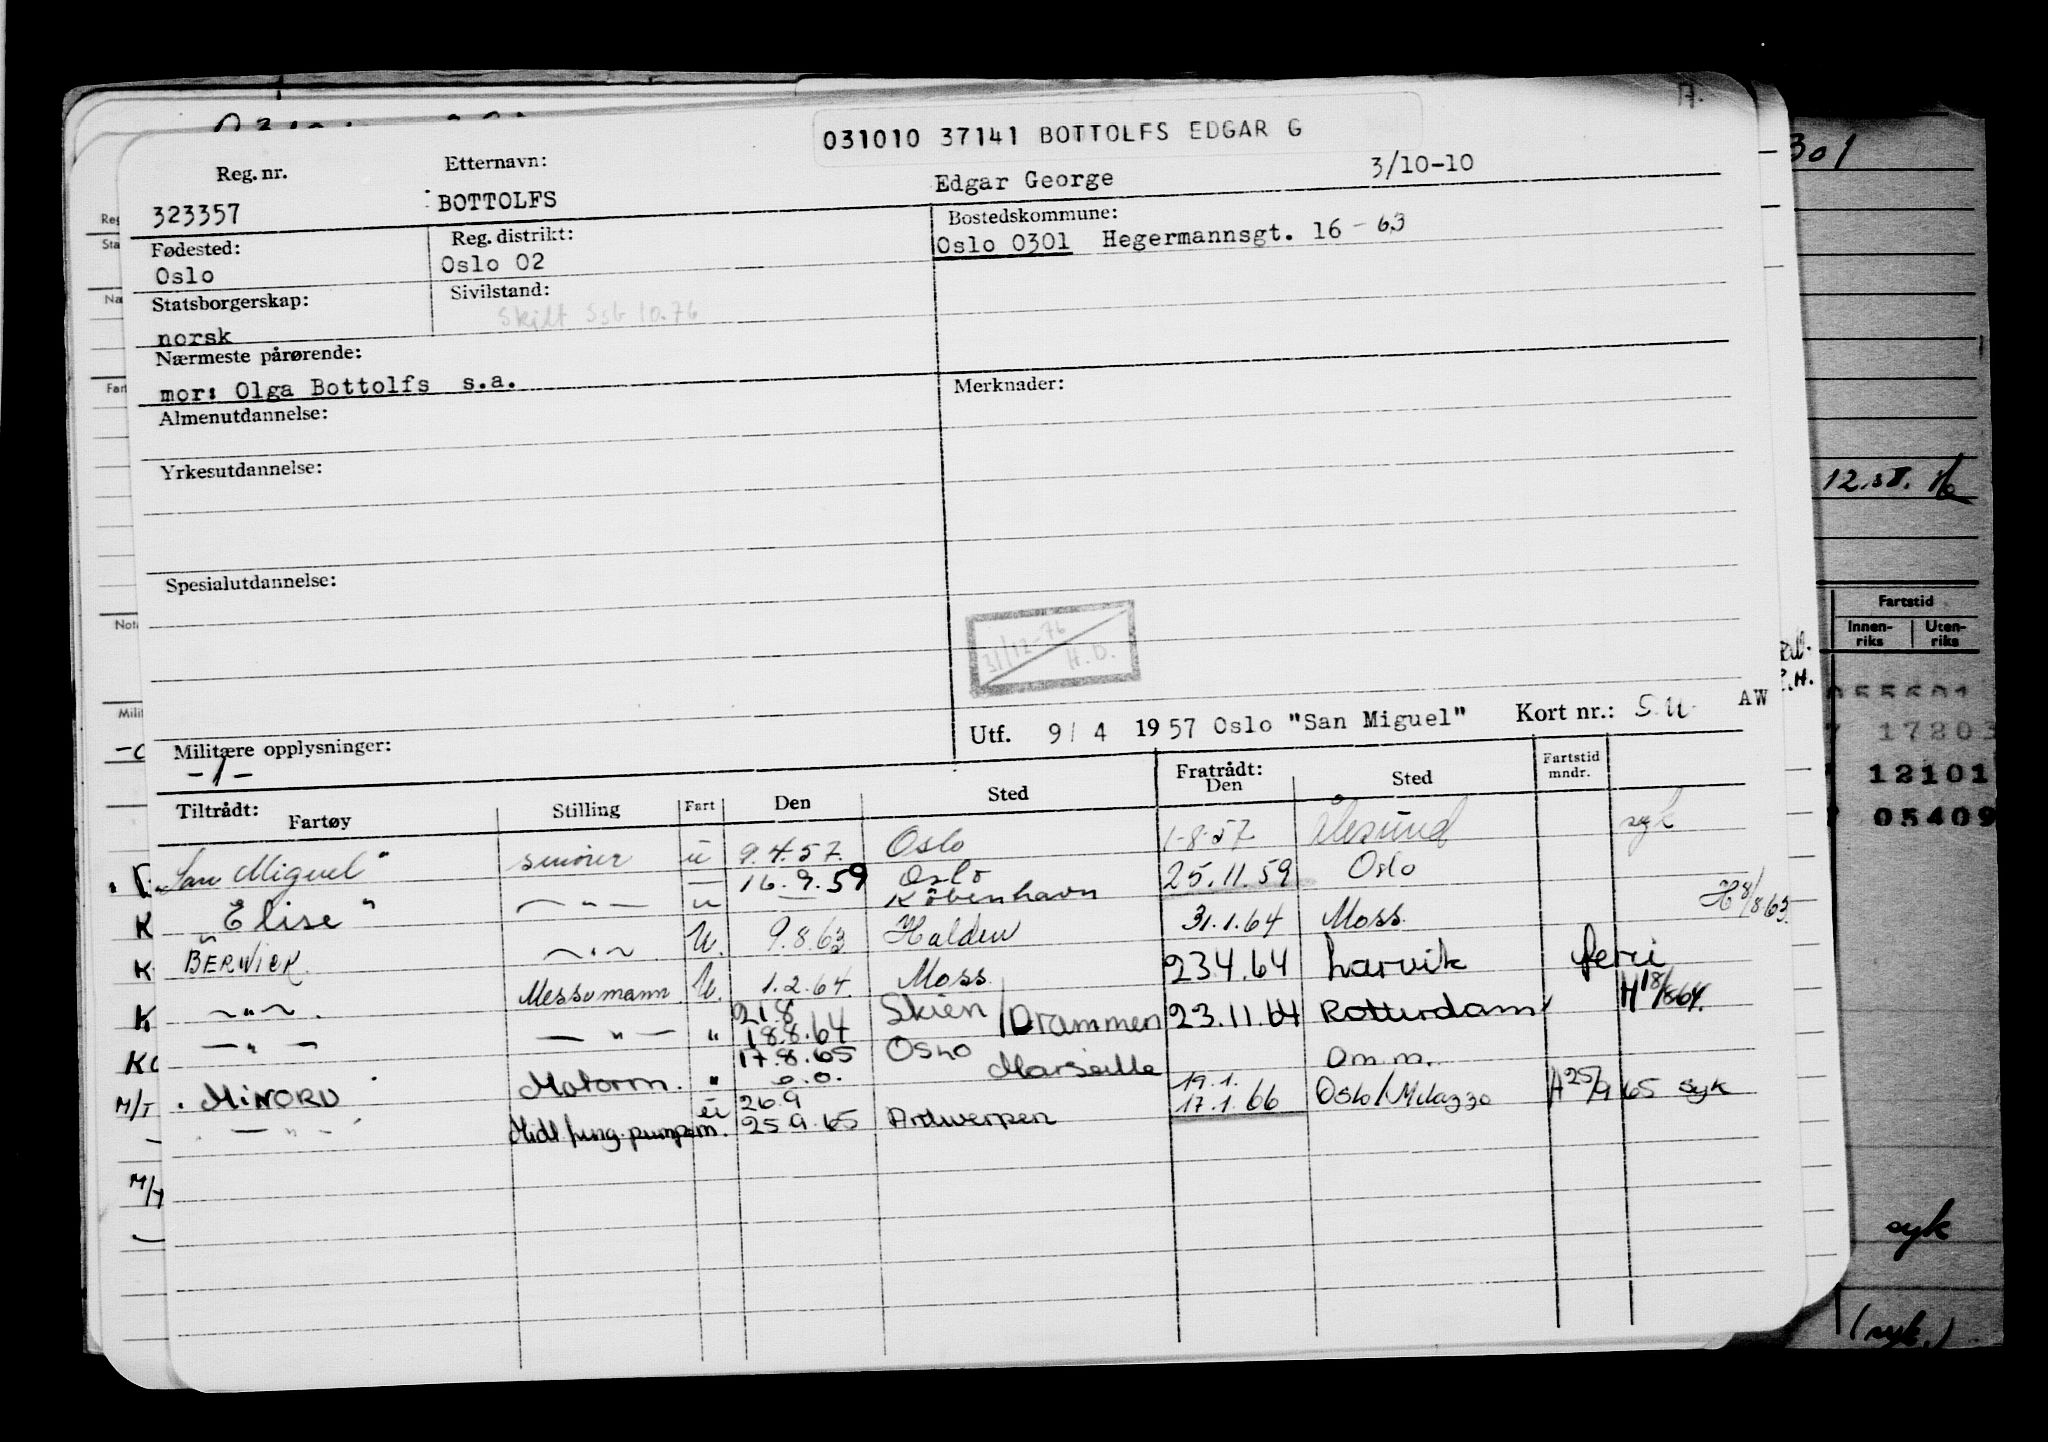 031010 37141 BOTTOLFS EDGAR G
A.
Reg. nr.
Etternavn:
323357
BOTTOLFS
Edgar George
3/10-10
Fødested:
Oslo
Reg. distrikt:
Oslo 02
Bostedskommune:
Oslo 0301 Hegermannsgt. 16 - 63
Statsborgerskap:
norsk
Sivilstand:
Skilt Ssb 10.76
Nærmeste pårørende:
mor: Olga Bottolfs s.a.
Merknader:
Almenutdannelse:
Yrkesutdannelse:
Spesialutdannelse:
31/12-76
H.B.
Militære opplysninger:
-1-
Utf. 9/4 1957 Oslo "San Miguel" Kort nr.: S.u. AW
Tiltrådt:
Fartøy Stilling Fart Den Sted Fratrådt: Den Sted Fartstid mndr.
"San Miguel" smører u 9.4.57 Oslo 1-8-57 Ålesund syk
16.9.59 Oslo 25.11.59 Oslo
"Elise" — " — u — København
BERWICK. — " — U. 9.8.63 Halden 31.1.64 Moss. H 8/8 63.
— " — Messemann U. 1.2.64. Moss. 23.4.64 Larvik ferie
— " — — " — " 21.8 18.8.64 Skien/Drammen 23.11.64 Rotterdam H 18/8 64.
MINORU Motorm. " 17.8.65 o.o. Oslo Marseille om.m.
— " — Midl. pumpem. u 26.9 25.9.65 Antwerpen 19.1. 17.1.66 Oslo/Milazzo H 25/9 65 syk
301
12.
Fartstid
Innen-riks
Uten-riks
055601
17203
12101
05409
syk
(syk.)
K
K
K
K
M/T